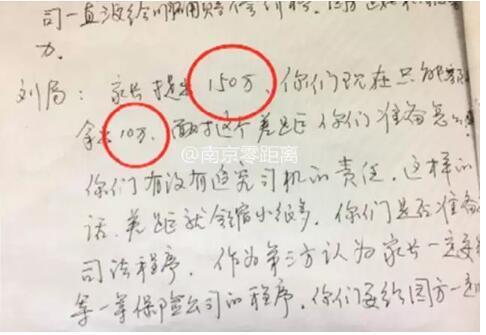 司一直没给
力.
刘局: 家长提出150万, 你们现在只能
拿出10万, 面对这个差距你们准备怎么
@南京零距离
你们有没有追究司机的责任, 这样的
话, 差距就会缩小很多. 你们是否准备
司法程序. 作为第三方认为家长一定要
等一等保险公司的程序. 你们要给园方一